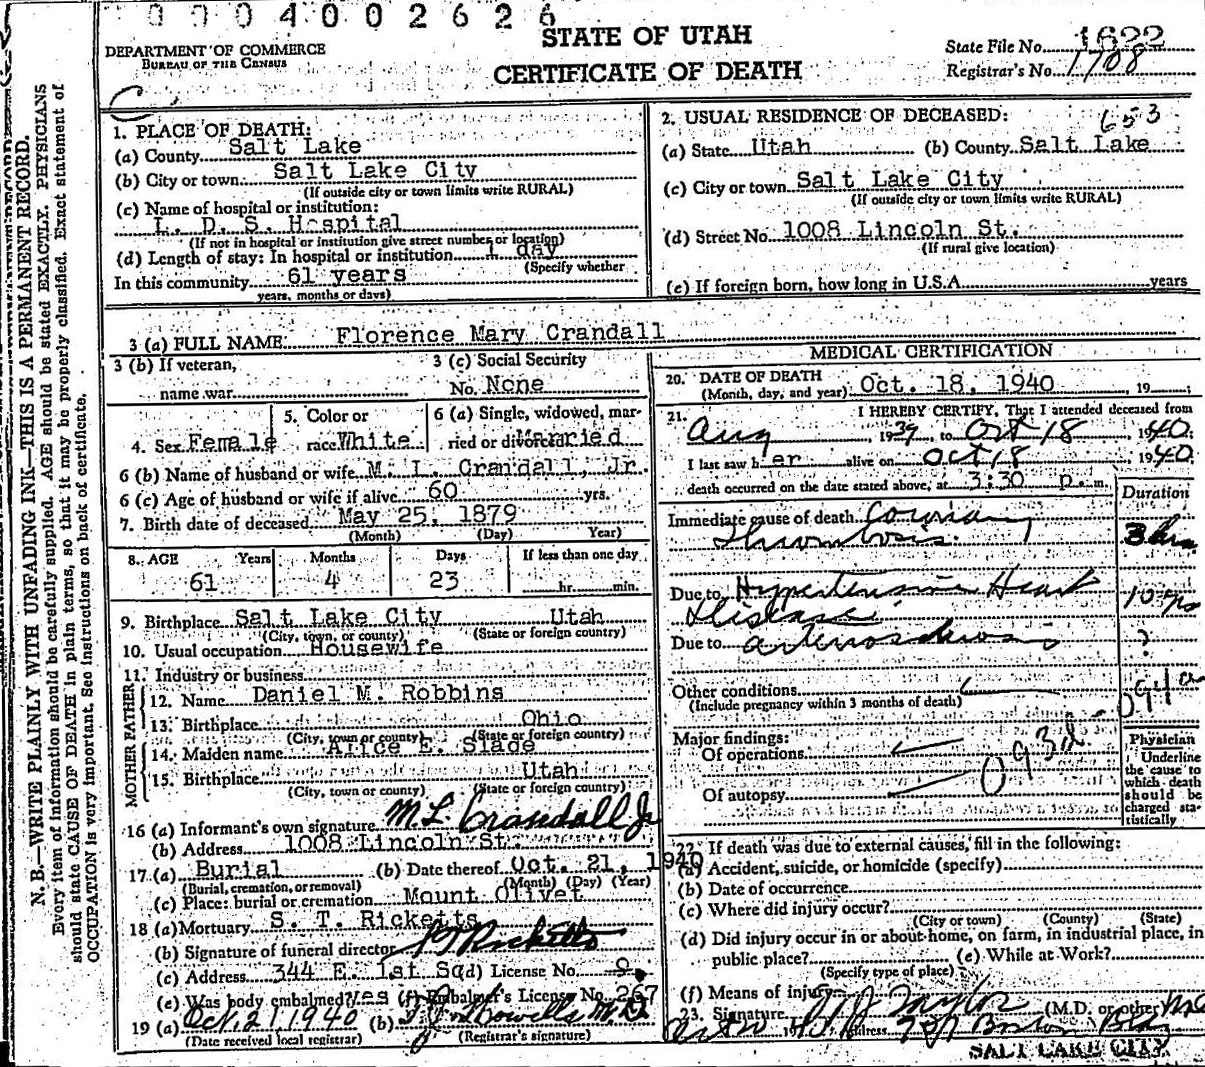 0004002626
STATE OF UTAH
CERTIFICATE OF DEATH
DEPARTMENT OF COMMERCE
BUREAU OF THE CENSUS
State File No. 1622
Registrar's No. 1708
N. B.—WRITE PLAINLY WITH UNFADING INK—THIS IS A PERMANENT RECORD.
Every item of information should be carefully supplied. AGE should be stated EXACTLY. PHYSICIANS
should state CAUSE OF DEATH in plain terms, so that it may be properly classified. Exact statement of
OCCUPATION is very important. See instructions on back of certificate.
1. PLACE OF DEATH:
(a) County Salt Lake
(b) City or town Salt Lake City
(If outside city or town limits write RURAL)
(c) Name of hospital or institution:
L. D. S. Hospital
(If not in hospital or institution give street number or location)
(d) Length of stay: In hospital or institution 1 day
(Specify whether
In this community 61 years
years, months or days)
2. USUAL RESIDENCE OF DECEASED: 653
(a) State Utah (b) County Salt Lake
(c) City or town Salt Lake City
(If outside city or town limits write RURAL)
(d) Street No. 1008 Lincoln St.
(If rural give location)
(e) If foreign born, how long in U.S.A. years
3 (a) FULL NAME: Florence Mary Crandall
3 (b) If veteran,
name war
3 (c) Social Security
No. None
4. Sex Female
5. Color or
race White
6 (a) Single, widowed, mar-
ried or divorced Married
6 (b) Name of husband or wife M. L. Crandall, Jr.
6 (c) Age of husband or wife if alive 60 yrs.
7. Birth date of deceased May 25, 1879
(Month) (Day) Year)
8. AGE Years Months Days If less than one day
61 4 23 hr. min.
9. Birthplace Salt Lake City Utah
(City, town, or county) (State or foreign country)
10. Usual occupation Housewife
11. Industry or business
FATHER
12. Name Daniel M. Robbins
13. Birthplace Ohio
(City, town or county) (State or foreign country)
MOTHER
14. Maiden name Alice E. Slade
15. Birthplace Utah
(City, town or county) (State or foreign country)
16 (a) Informant's own signature M L Crandall Jr
(b) Address 1008 Lincoln St.
17 (a) Burial (b) Date thereof Oct. 21, 1940
(Burial, cremation, or removal) (Month) (Day) (Year)
(c) Place: burial or cremation Mount Olivet
18 (a) Mortuary S. T. Ricketts
(b) Signature of funeral director Ricketts
(c) Address 344 E. 1st So (d) License No. 9
(e) Was body embalmed? yes (f) Embalmer's License No. 267
19 (a) Oct. 21, 1940 (b) Howells M.D.
(Date received local registrar) (Registrar's signature)
MEDICAL CERTIFICATION
20. DATE OF DEATH
(Month, day, and year) Oct. 18, 1940, 19
21. I HEREBY CERTIFY, That I attended deceased from
Aug, 1939, to Oct 18 1940
I last saw her alive on Oct 18 1940
death occurred on the date stated above, at 3:30 p. m.
Duration
Immediate cause of death Coronary
Thrombosis. 3 hrs
Due to Hypertensive Heart
Disease 10 yrs
Due to arteriosclerosis ?
Other conditions
(Include pregnancy within 3 months of death)
094a
Major findings:
Of operations
093d
Of autopsy
Physician
Underline
the cause to
which death
should be
charged sta-
tistically
22. If death was due to external causes, fill in the following:
(a) Accident, suicide, or homicide (specify)
(b) Date of occurrence
(c) Where did injury occur?
(City or town) (County) (State)
(d) Did injury occur in or about home, on farm, in industrial place, in
public place? (e) While at Work?
(Specify type of place)
(f) Means of injury
23. Signature Taylor (M.D. or other) MD
Address Boston Bldg
SALT LAKE CITY